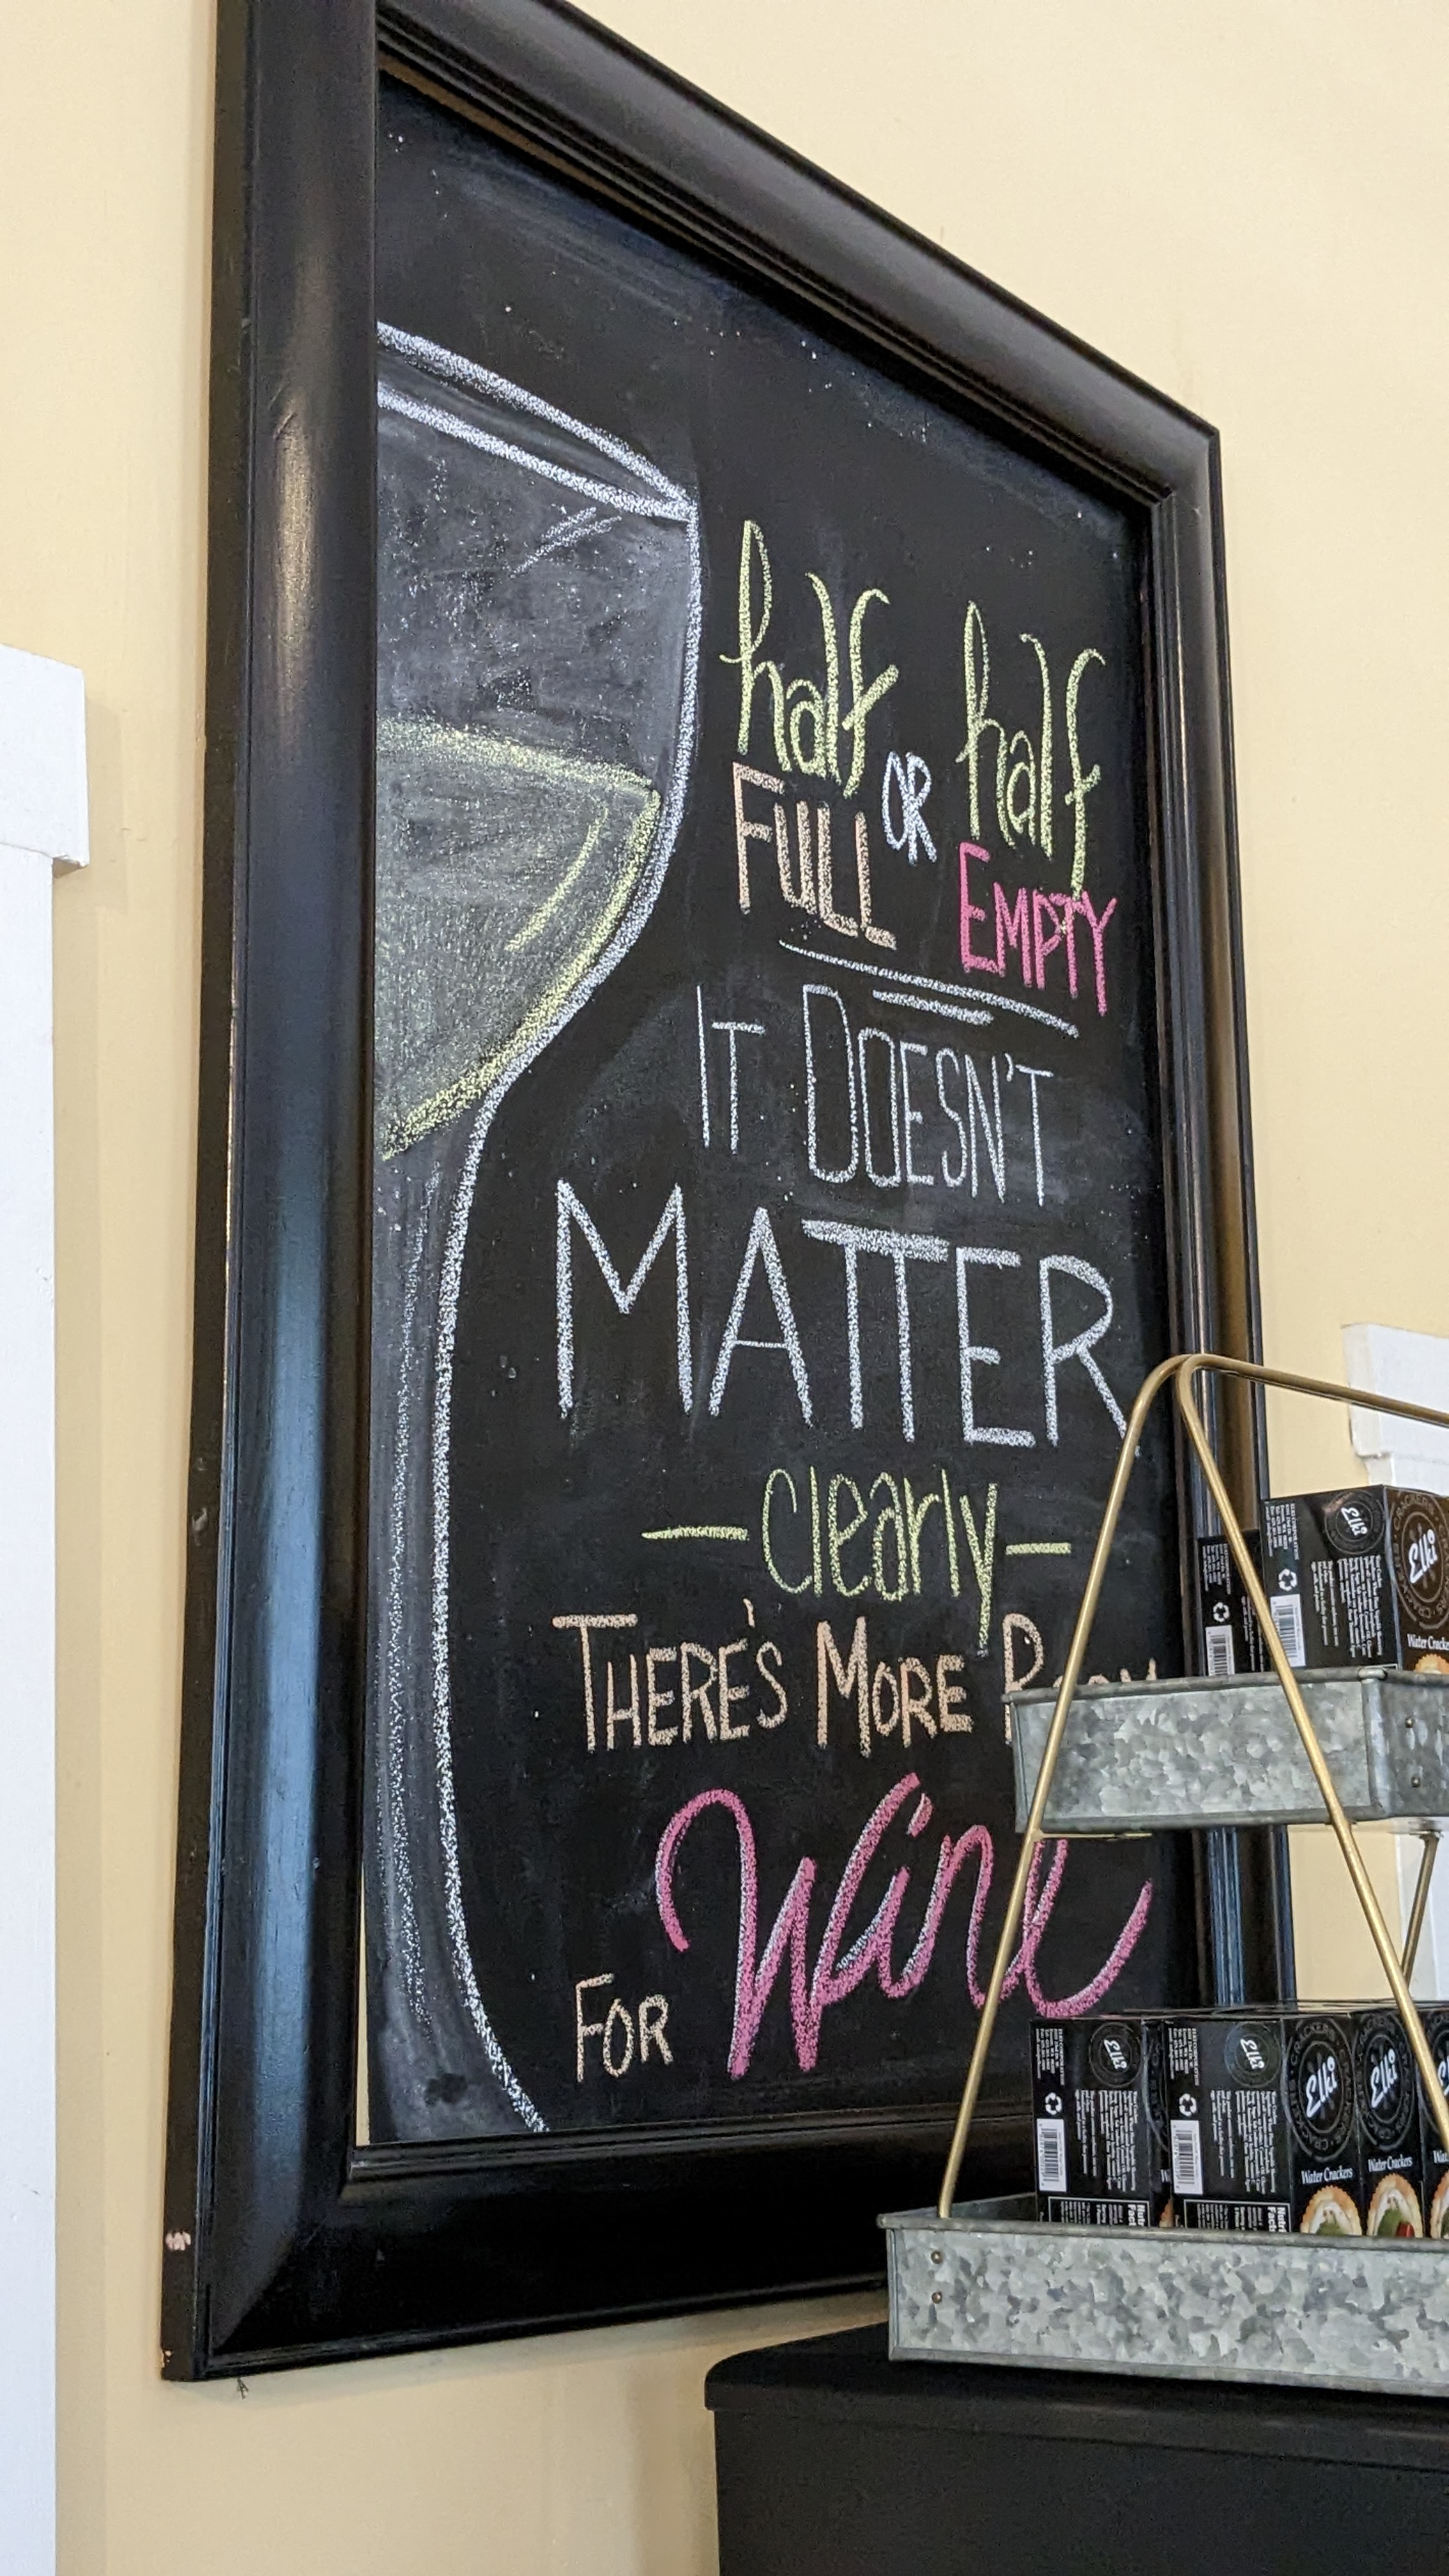 half or half
FULL EMPTY
IT DOESN'T
MATTER
-clearly-
THERE'S MORE
FOR Wine
Elki
Elki
Water Crackers
Elki
Elki
Elki
Elki
Water Crackers
Water Crackers